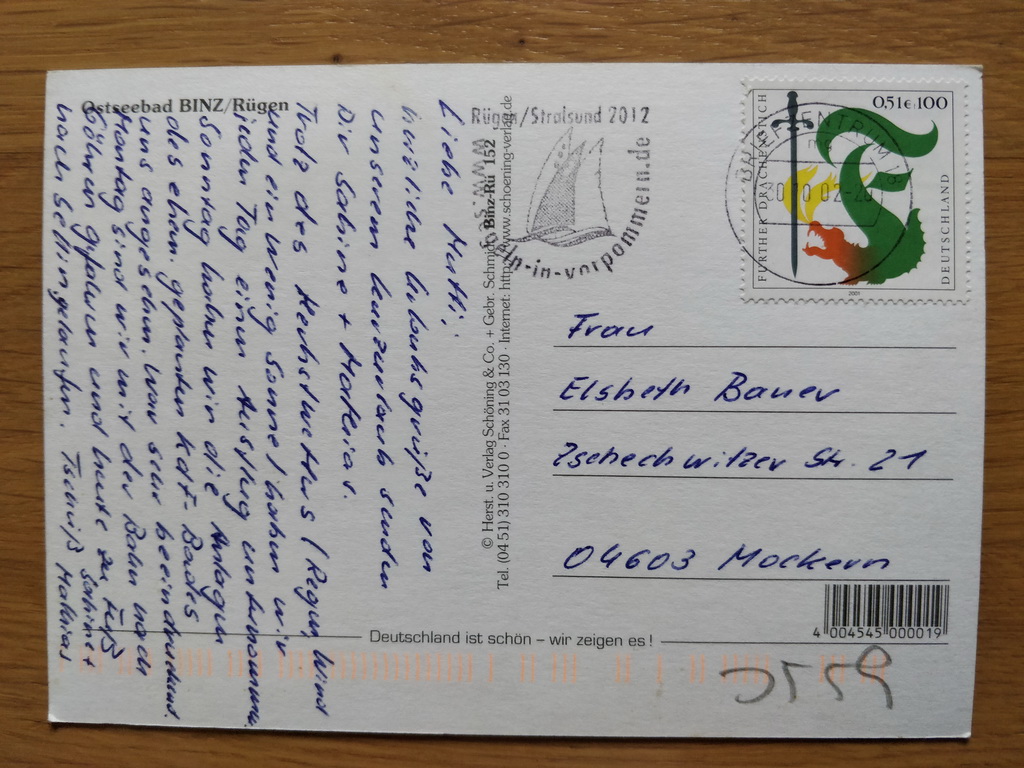 Ostseebad BINZ/Rügen
Liebe Mutti,
herzliche Urlaubsgrüße von
unserem Kurzurlaub senden
Dir Sabine + Mattias.
Trotz des Herbstwetters (Regen, Wind
und ein wenig Sonne) haben wir
jeden Tag einen Ausflug unternommen.
Sonntag haben wir die Anlagen
des ehem. geplanten KdF-Bades
uns angesehen. War sehr beeindruckend.
Montag sind wir mit der Bahn nach
Göhren gefahren und heute zu Fuß
nach Sellin gelaufen. Tschüß Sabine +
Mattias
© Herst. u. Verlag Schöning & Co. + Gebr. Schmidt
Tel. (04 51) 310 310 0 · Fax 31 03 130 · Internet: http://www.schoening-verlag.de
Binz-Rü 152
Rügen/Stralsund 2012
www.
-in-vorpommern.de
BRIEFZENTRUM 18
30.10.02-20
0,51€ 100
FURTHER DRACHENSTICH
DEUTSCHLAND
2001
Frau
Elsbeth Bauer
Zschechwitzer Str. 21
04603 Mockern
4 004545 000019
Deutschland ist schön – wir zeigen es!